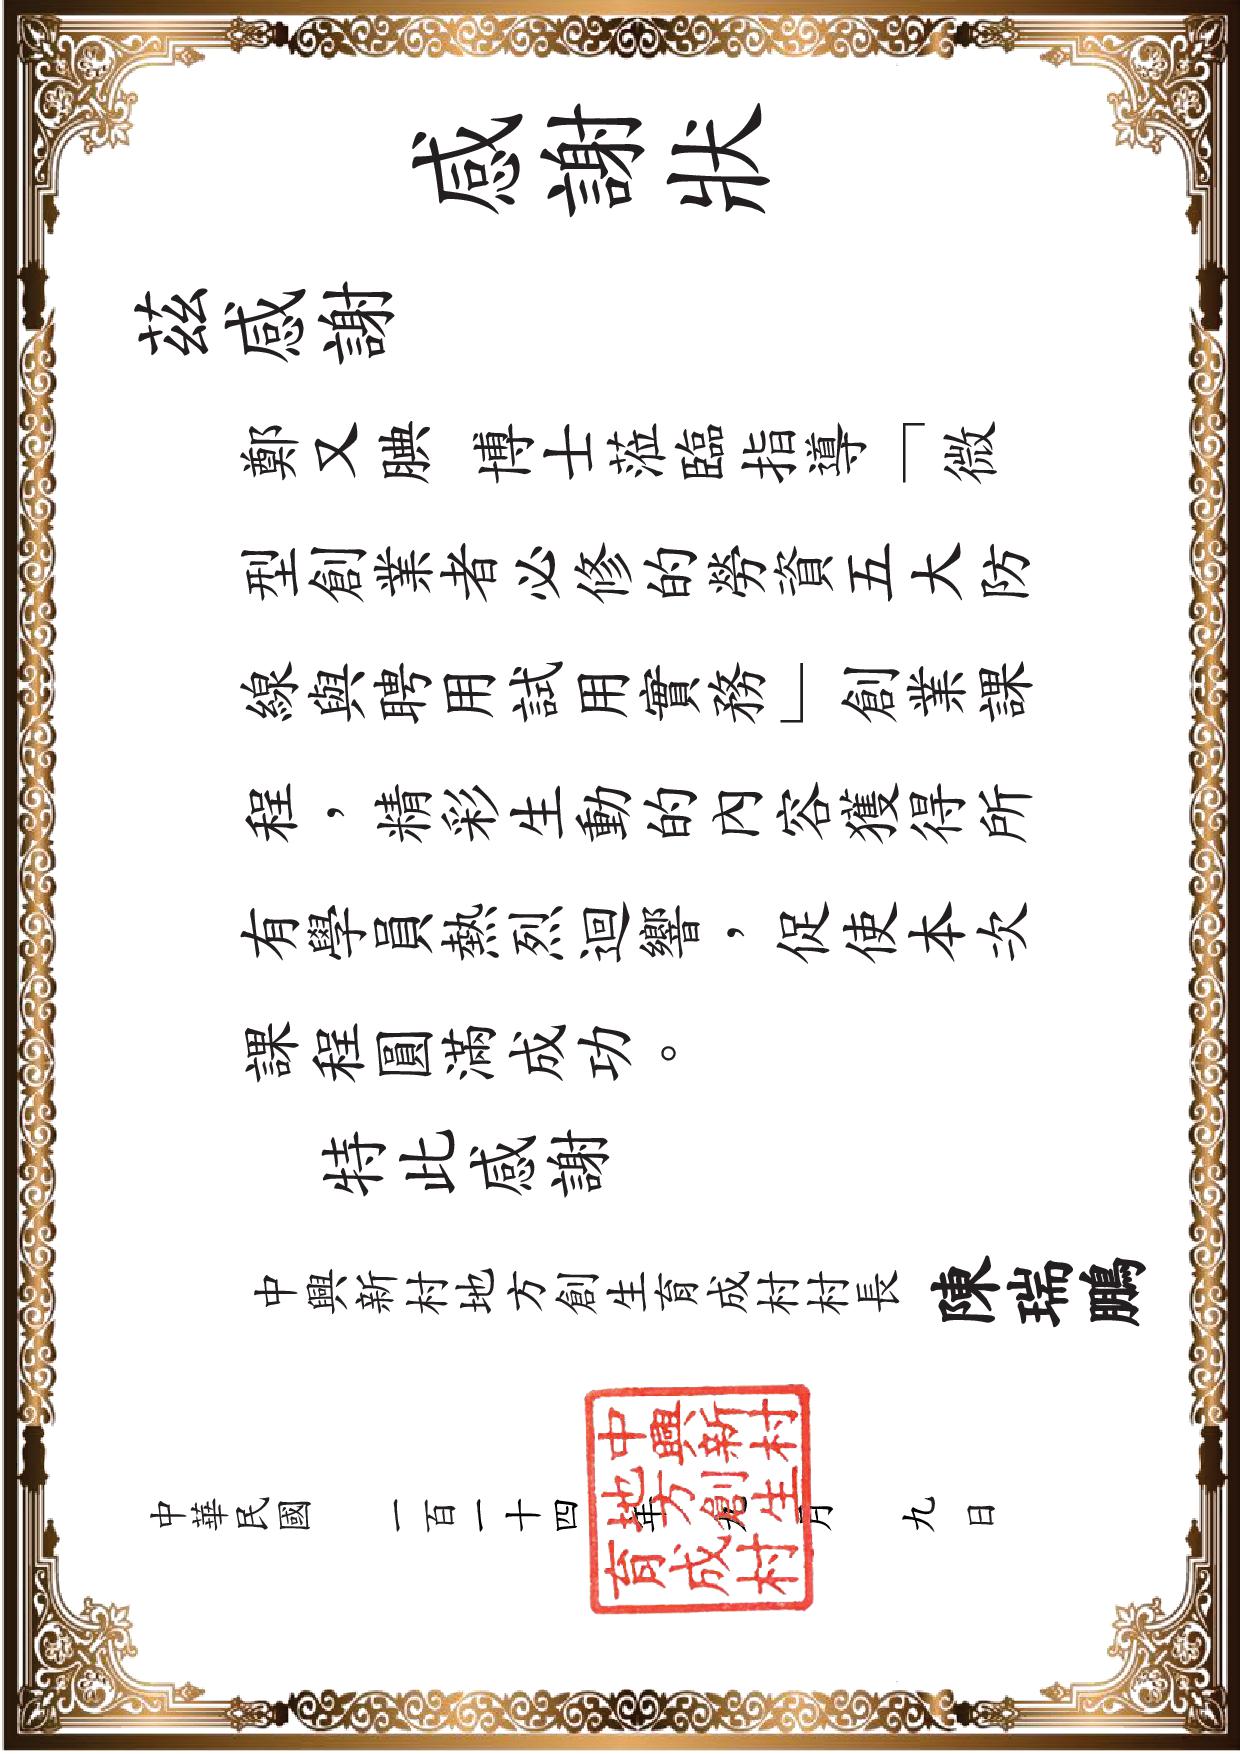 感謝狀
茲感謝
鄭又腆 博士蒞臨指導「微
型創業者必修的勞資五大防
線與聘用試用實務」創業課
程，精彩生動的內容獲得所
有學員熱烈迴響，促使本次
課程圓滿成功。
特此感謝
中興新村地方創生育成村村長 陳瑞鵬
中華民國 一百一十四年九月九日
中興新村
地方創生
育成村